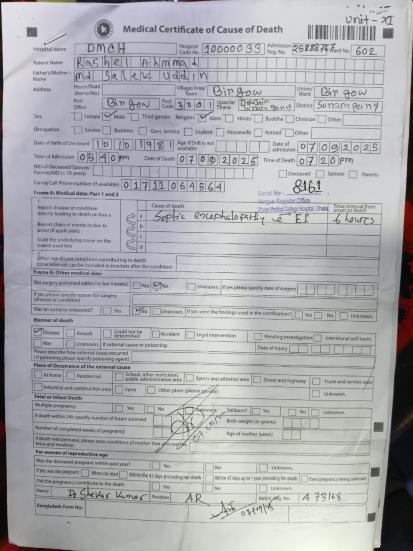 Unit - XI
Medical Certificate of Cause of Death
Hospital Name DMCH Hospital Code No. 10000033 Admission Reg. No. Ward No. 602
Patient Name Rashel Ahmmad
Father/Mother's Name Md Salek Uddin
Address House/Road (Name/No) Village/Area/Town Birgow Union/Ward Birgow
Post Office Birgow Post Code Upazila/Thana District Sunamgong
Sex Female Male Third gender Religion Islam Hindu Buddha Christian Other
Occupation Service Business Govt. Service Student Housewife Retired Other
Date of Birth of Deceased 10 10 1981 Age if DoB is not available Date of admission 07 09 2025
Time of Admission 0540 pm Date of Death 07 09 2025 Time of Death 0720 pm
NID of Deceased/Spouse/Parents/NID (< 18 years) Deceased Spouse Parents
Family Cell Phone number (if available) 01711064564
Serial No: 8161
Morgue Register Office
Dhaka Medical College Hospital, Dhaka
Frame A: Medical data: Part 1 and 2
Cause of death Time interval from onset to death
Report disease or condition directly leading to death on line a a Septic encephalopathy 6 hours
Report chain of events in due to order (if applicable) b
State the underlying cause on the lowest used line c
d
Other significant conditions contributing to death (time intervals can be included in brackets after the condition)
Frame B: Other medical data
Was surgery performed within the last 4 weeks? Yes No Unknown. If yes please specify date of surgery
If yes please specify reason for surgery (disease or condition)
Was an autopsy requested? Yes No Unknown. If yes were the findings used in the certification? Yes No Unknown.
Manner of death
Disease Assault Could not be determined Accident Legal intervention Pending investigation Intentional self harm
War Unknown. If external cause or poisoning: Date of injury
Please describe how external cause occurred (If poisoning please specify poisoning agent)
Place of Occurrence of the external cause
At home Residential School, other institution, public administrative area Sports and athletics area Street and highway Trade and service area
Industrial and construction area Farm Other place (please specify) Unknown
Fetal or Infant Death
Multiple pregnancy Yes No Unknown. Stillborn? Yes No Unknown.
If death within 24h specify number of hours survived Birth weight (in grams)
Number of completed weeks of pregnancy Age of mother (years)
If death was perinatal, please state conditions of mother that affected the fetus and newborn
For women of reproductive age
Was the deceased pregnant within past year? Yes No Unknown.
If yes, was the pregnant When she died Within the 42 days preceding her death Within 43 days up to 1 year preceding her death Exact pregnancy timing unknown
Did the pregnancy contribute to the death Yes No Unknown.
Name Dr Shekar Kumar Position AR BMDC Reg. No. A 73168
Bangladesh Form No.